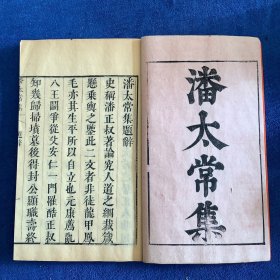 潘太常集
潘太常集題辭
史稱潘正叔著論究人道之綱裁箴
懸乗輿之鑒此二文者非徒龍甲鳳
毛亦其生平所以自立也元康薦亂
八王鬬爭從父安仁一門罹酷正叔
知幾歸掃墳墓後得封公顯職壽終